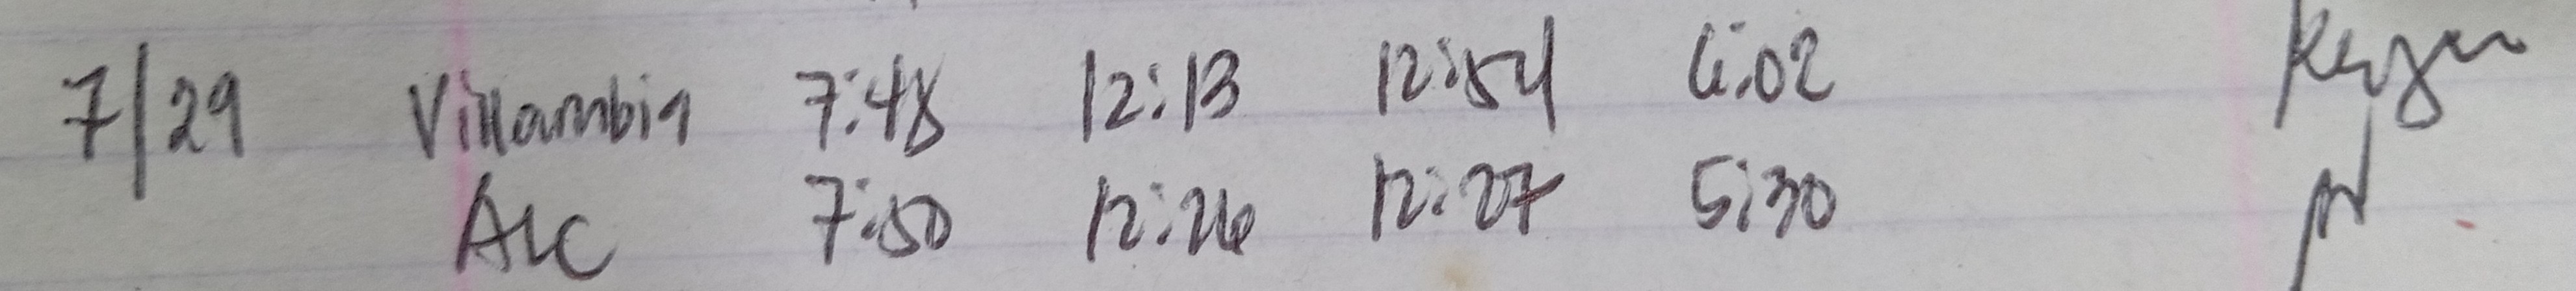 7/29 Villambia 7:48 12:13 12:54 6:02
ALC 7:50 12:26 12:27 5:30